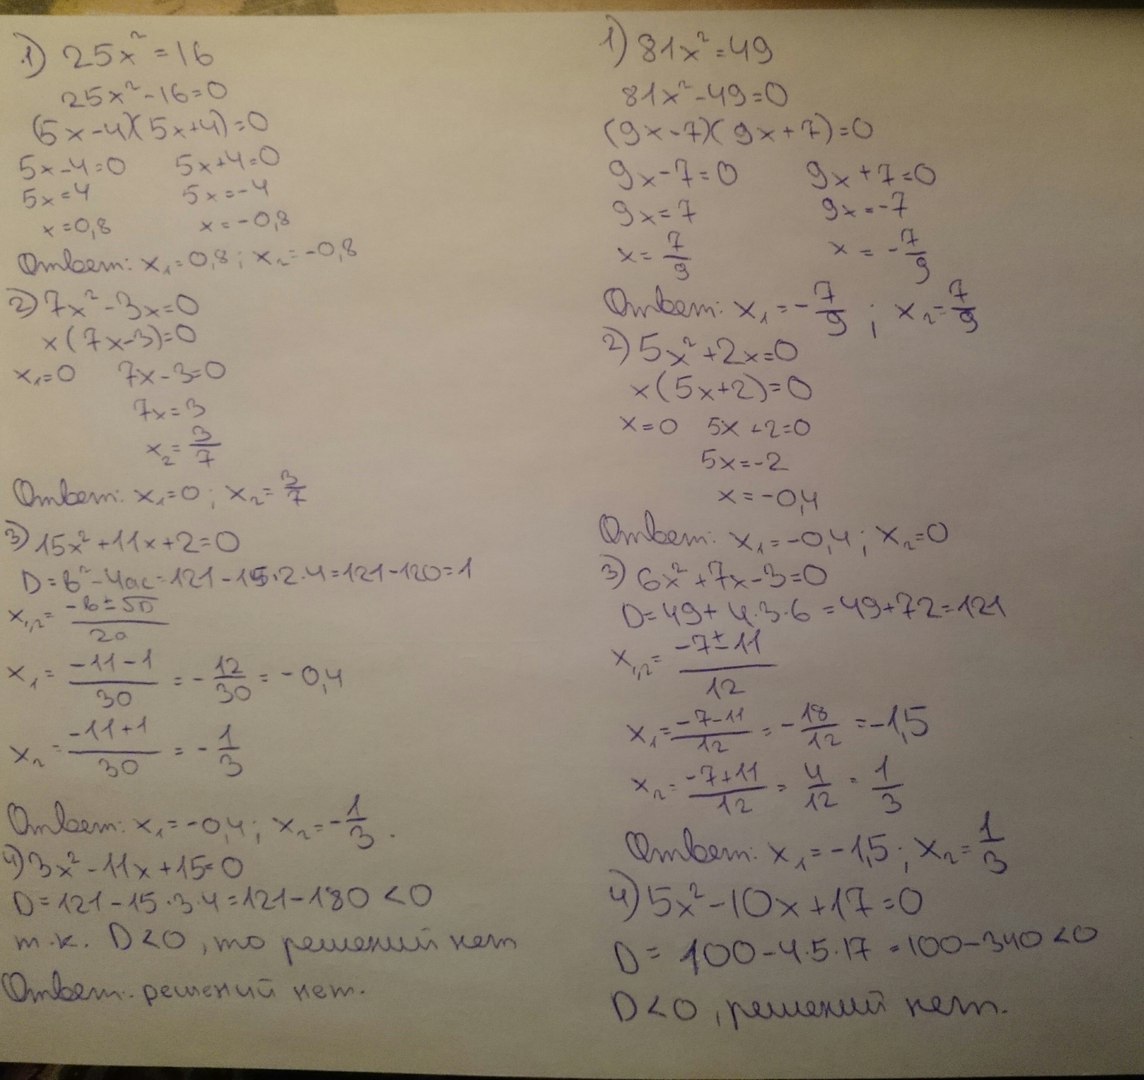 1) 25x² = 16
25x² - 16 = 0
(5x - 4)(5x + 4) = 0
5x - 4 = 0   5x + 4 = 0
5x = 4   5x = -4
x = 0,8   x = -0,8
Ответ: x₁ = 0,8; x₂ = -0,8
2) 7x² - 3x = 0
x(7x - 3) = 0
x₁ = 0   7x - 3 = 0
7x = 3
x₂ = 3/7
Ответ: x₁ = 0; x₂ = 3/7
3) 15x² + 11x + 2 = 0
D = b² - 4ac = 121 - 15·2·4 = 121 - 120 = 1
x₁,₂ = (-b ± √D)/2a
x₁ = (-11 - 1)/30 = -12/30 = -0,4
x₂ = (-11 + 1)/30 = -1/3
Ответ: x₁ = -0,4; x₂ = -1/3.
4) 3x² - 11x + 15 = 0
D = 121 - 15·3·4 = 121 - 180 < 0
т.к. D < 0, то решений нет
Ответ: решений нет.
1) 81x² = 49
81x² - 49 = 0
(9x - 7)(9x + 7) = 0
9x - 7 = 0   9x + 7 = 0
9x = 7   9x = -7
x = 7/9   x = -7/9
Ответ: x₁ = -7/9; x₂ = 7/9
2) 5x² + 2x = 0
x(5x + 2) = 0
x = 0   5x + 2 = 0
5x = -2
x = -0,4
Ответ: x₁ = -0,4; x₂ = 0
3) 6x² + 7x - 3 = 0
D = 49 + 4·3·6 = 49 + 72 = 121
x₁,₂ = (-7 ± 11)/12
x₁ = (-7 - 11)/12 = -18/12 = -1,5
x₂ = (-7 + 11)/12 = 4/12 = 1/3
Ответ: x₁ = -1,5; x₂ = 1/3
4) 5x² - 10x + 17 = 0
D = 100 - 4·5·17 = 100 - 340 < 0
D < 0, решений нет.